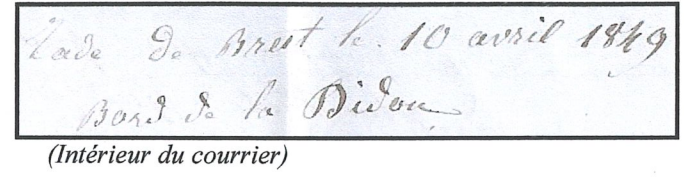 Rade de Brest le 10 avril 1849
Bord de la Didon
(Intérieur du courrier)